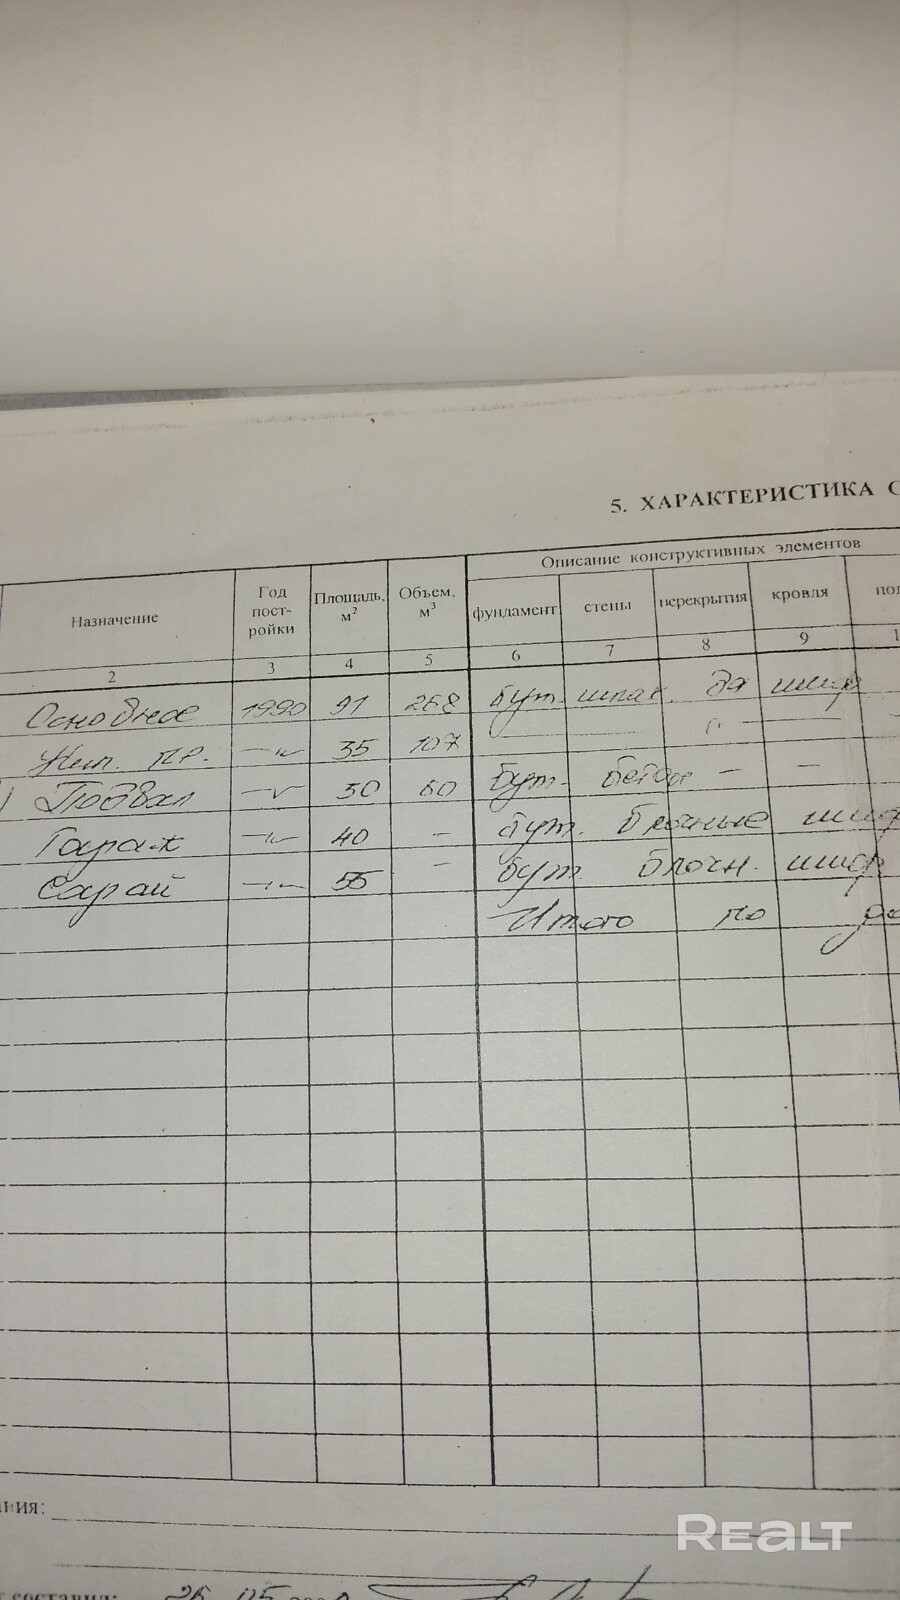 5. ХАРАКТЕРИСТИКА С
Назначение Год пост-ройки Площадь, м² Объем, м³ Описание конструктивных элементов
фундамент стены перекрытия кровля пол
2 3 4 5 6 7 8 9 1
Основное 1990 91 268 бут. шлак. шифр
пр. —"— 35 107 — — " — —
Подвал —"— 30 60 бут. бетон — —
Гараж —"— 40 — бут. блочные шифр
Сарай —"— 55 — бут блочн. шифр
Итого по
ания:
составил: 26 05
REALT